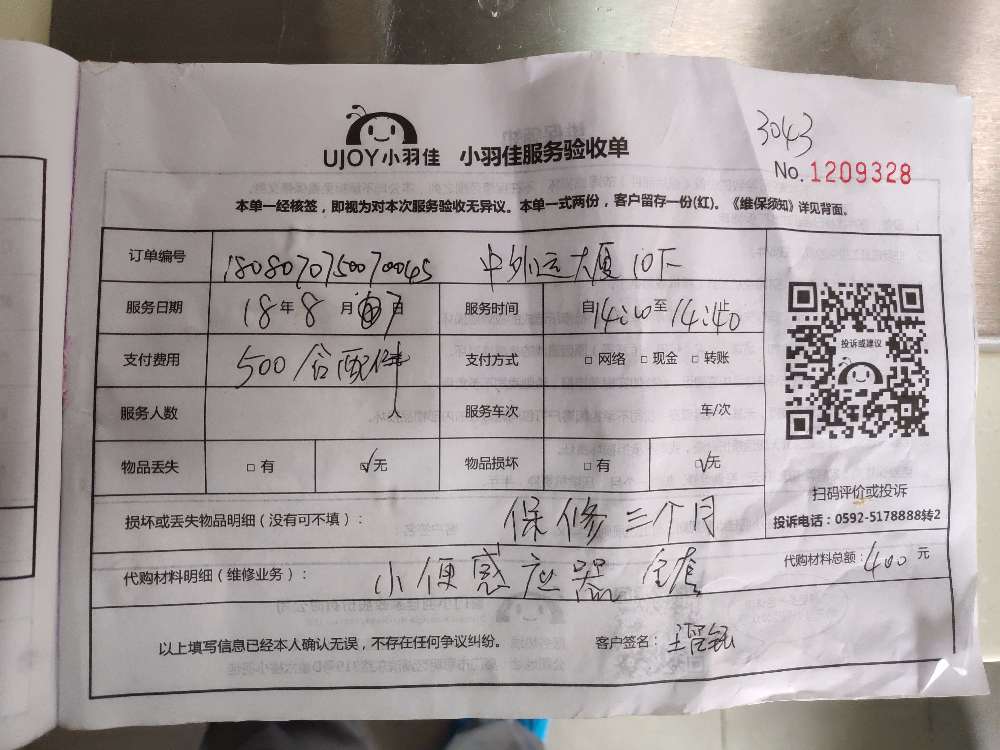 3043
UJOY小羽佳 小羽佳服务验收单
No. 1209328
本单一经核签，即视为对本次服务验收无异议。本单一式两份，客户留存一份(红)。《维保须知》详见背面。
订单编号 1808070750070045 中外运大厦10下
服务日期 18年8月7日 服务时间 自14:10至14:40止
支付费用 500含配件 支付方式 □网络 □现金 □转账
投诉或建议
服务人数 人 服务车次 车/次
物品丢失 □有 ☑无 物品损坏 □有 ☑无
扫码评价或投诉
投诉电话：0592-5178888转2
损坏或丢失物品明细（没有可不填）： 保修三个月
代购材料明细（维修业务）： 小便感应器 全套 代购材料总额：400元
以上填写信息已经本人确认无误，不存在任何争议纠纷。 客户签名：